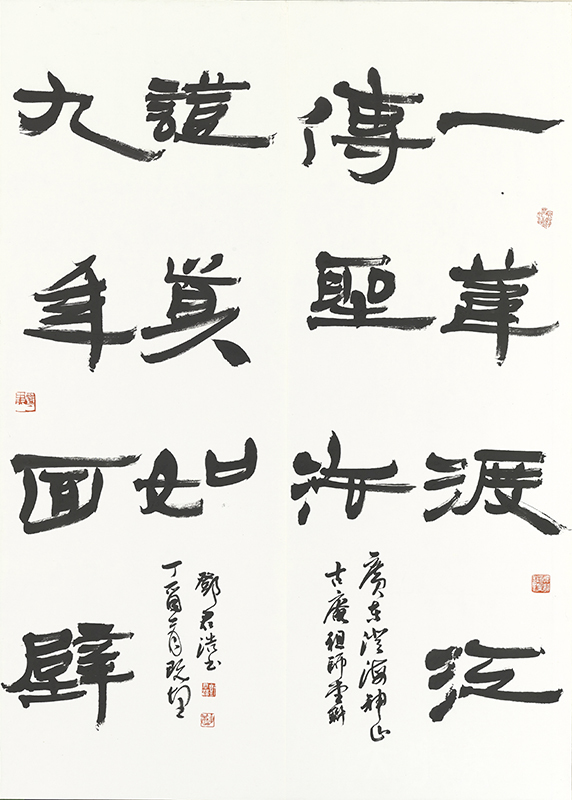 一葦渡江
傳聖法
廣東澄海神山
古庵祖師堂聯
九年面壁
證真如
鄧君浩書
丁酉